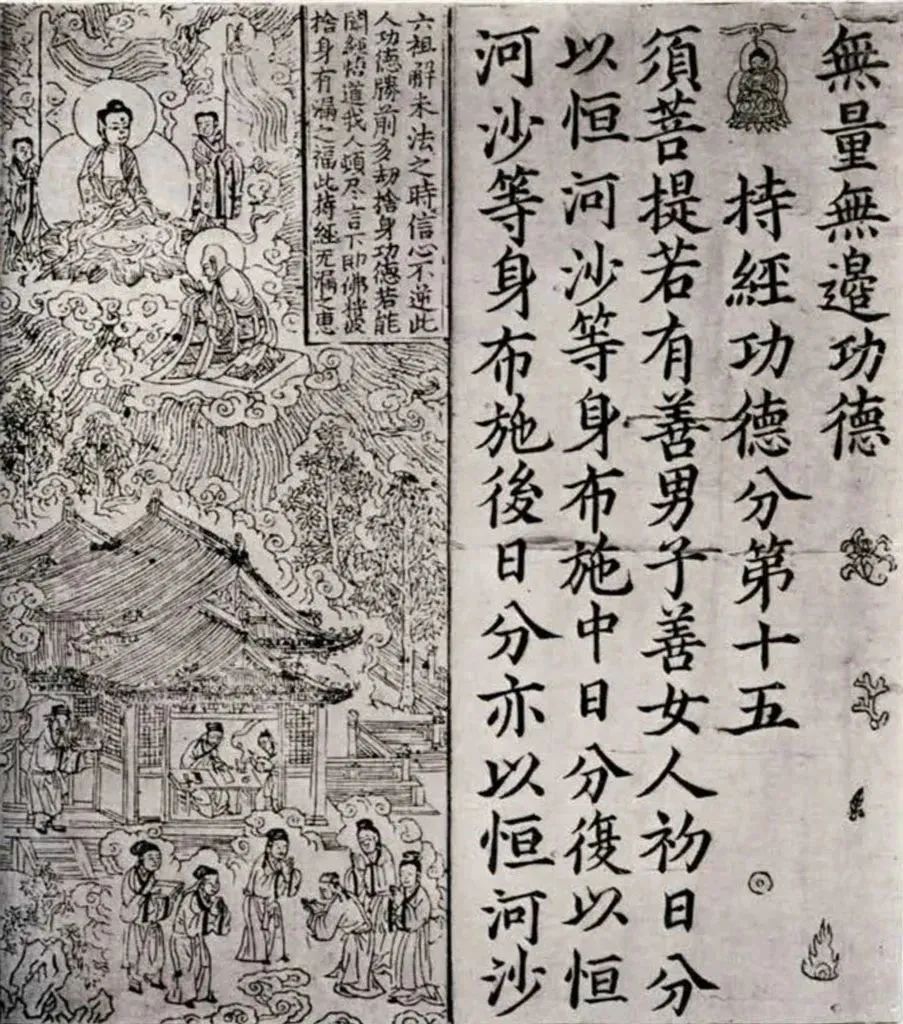 無量無邊功德
持經功德分第十五
須菩提若有善男子善女人初日分
以恒河沙等身布施中日分復以恒
河沙等身布施後日分亦以恒河沙
六祖解末法之時信心不逆此
人功德勝前多劫捨身功德若能
聞經悟道我人頓尽言下即佛將彼
捨身有漏之福此持經无漏之惠